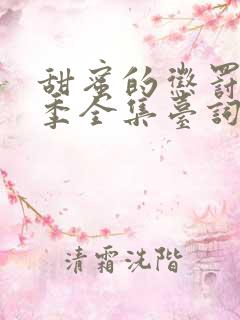 甜蜜的懲罰
季全集臺詞
清霜洗階